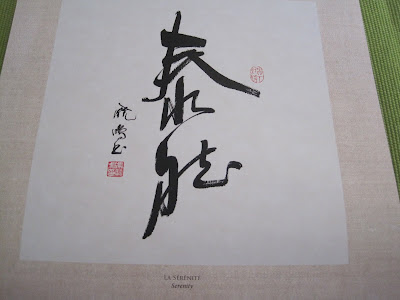 泰
然
La Sérénité
Serenity